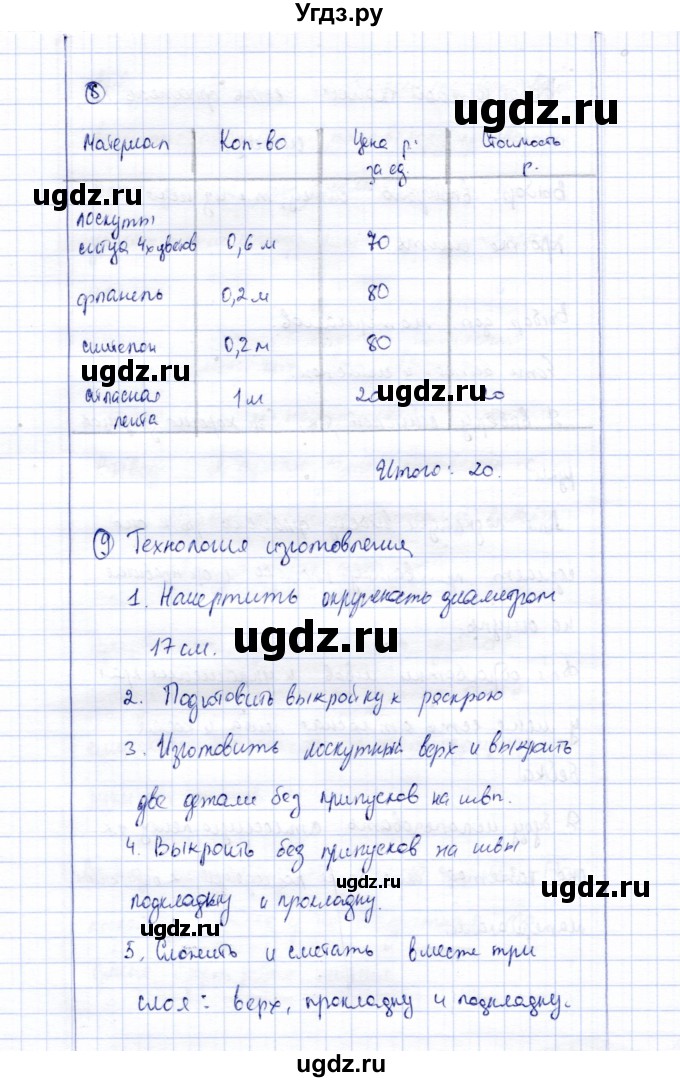 Угдз.ру
8
ugdz.ru
Материал Кол-во Цена р. за ед. Стоимость р.
ugdz.ru
лоскуты
ситца 4х цветов 0,6 м 70
ugdz.ru
фланель 0,2 м 80
синтепон 0,2 м 80
ugdz.ru
ugdz.ru
атласная лента 1 м 20 20
Итого: 20.
9 Технология изготовления
1. Начертить окружность диаметром
17 см.
ugdz.ru
2. Подготовить выкройку к раскрою
3. Изготовить лоскутный верх и выкроить
ugdz.ru
две детали без припусков на швы.
4. Выкроить без припусков на швы
ugdz.ru
подкладку и прокладку.
ugdz.ru
5. Сложить и сметать вместе три
слоя: верх, прокладку и подкладку.
ugdz.ru